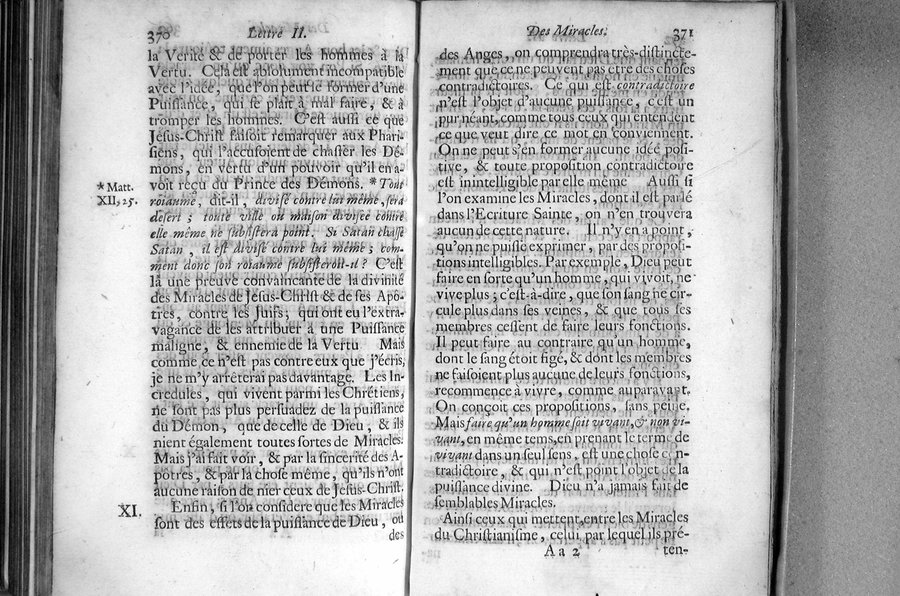 370 Lettre II.
la Verité & de porter les hommes à la
Vertu. Cela est absolument incompatible
avec l'idée, que l'on peut se former d'une
Puissance, qui se plaît à mal faire, & à
tromper les hommes. C'est aussi ce que
Jésus-Christ faisoit remarquer aux Phari-
siens, qui l'accusoient de chasser les Dé-
mons, en vertu d'un pouvoir qu'il en a-
voit reçu du Prince des Démons. * Tout
* Matt.
XII, 25.
roiaume, dit-il, divisé contre lui même, sera
désert; toute ville ou maison divisée contre
elle même ne subsistera point. Si Satan chasse
Satan, il est divisé contre lui même; com-
ment donc son roiaume subsisteroit-il? C'est
là une preuve convaincante de la divinité
des Miracles de Jésus-Christ & de ses Apô-
tres, contre les Juifs; qui ont eu l'extra-
vagance de les attribuer à une Puissance
maligne, & ennemie de la Vertu Mais
comme ce n'est pas contre eux que j'écris,
je ne m'y arrêterai pas davantage. Les In-
credules, qui vivent parmi les Chrétiens,
ne sont pas plus persuadez de la puissance
du Démon, que de celle de Dieu, & ils
nient également toutes sortes de Miracles.
Mais j'ai fait voir, & par la sincerité des A-
pôtres, & par la chose même, qu'ils n'ont
aucune raison de nier ceux de Jésus-Christ.
XI. Enfin, si l'on considere que les Miracles
sont des effets de la puissance de Dieu, ou
des
Des Miracles. 371
des Anges, on comprendra très-distincte-
ment que ce ne peuvent pas etre des choses
contradictoires. Ce qui est contradictoire
n'est l'objet d'aucune puissance, c'est un
pur néant, comme tous ceux qui entendent
ce que veut dire ce mot en conviennent.
On ne peut s'en former aucune idée posi-
tive, & toute proposition contradictoire
est inintelligible par elle même Aussi si
l'on examine les Miracles, dont il est parlé
dans l'Ecriture Sainte, on n'en trouvera
aucun de cette nature. Il n'y en a point,
qu'on ne puisse exprimer, par des proposi-
tions intelligibles. Par exemple, Dieu peut
faire en sorte qu'un homme, qui vivoit, ne
vive plus; c'est-à-dire, que son sang ne cir-
cule plus dans ses veines, & que tous ses
membres cessent de faire leurs fonctions.
Il peut faire au contraire qu'un homme,
dont le sang étoit figé, & dont les membres
ne faisoient plus aucune de leurs fonctions,
recommence à vivre, comme auparavant.
On conçoit ces propositions, sans peine.
Mais faire qu'un homme soit vivant, & non vi-
vant, en même tems, en prenant le terme de
vivant dans un seul sens, est une chose con-
tradictoire, & qui n'est point l'objet de la
puissance divine. Dieu n'a jamais fait de
semblables Miracles.
Ainsi ceux qui mettent, entre les Miracles
du Christianisme, celui, par lequel ils pré-
A a 2 ten-